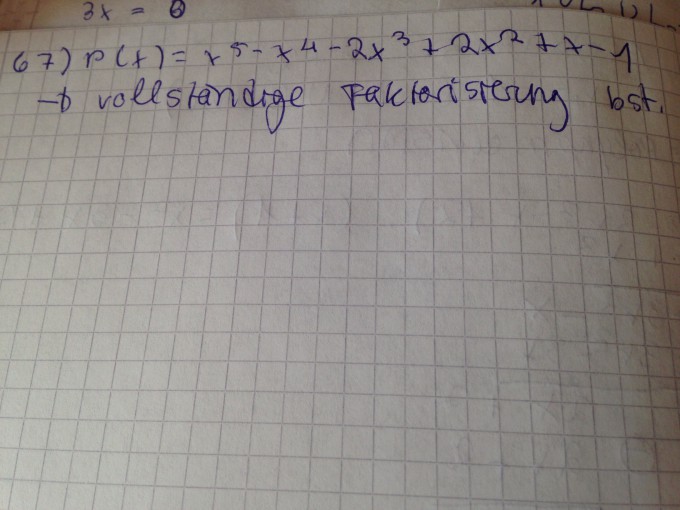 3x = 0
67) p(x) = x⁵ - x⁴ - 2x³ + 2x² + x - 1
→ vollständige Faktorisierung bst.